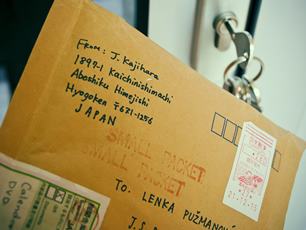 From: J. Kajihara
1899-1 Kaichinishimachi
Aboshiku Himejishi
Hyogoken 〒671-1256
JAPAN
SMALL PACKET
SMALL PACKET
To: LENKA PUŽMANOVÁ
J.S.
Calenda
DVD